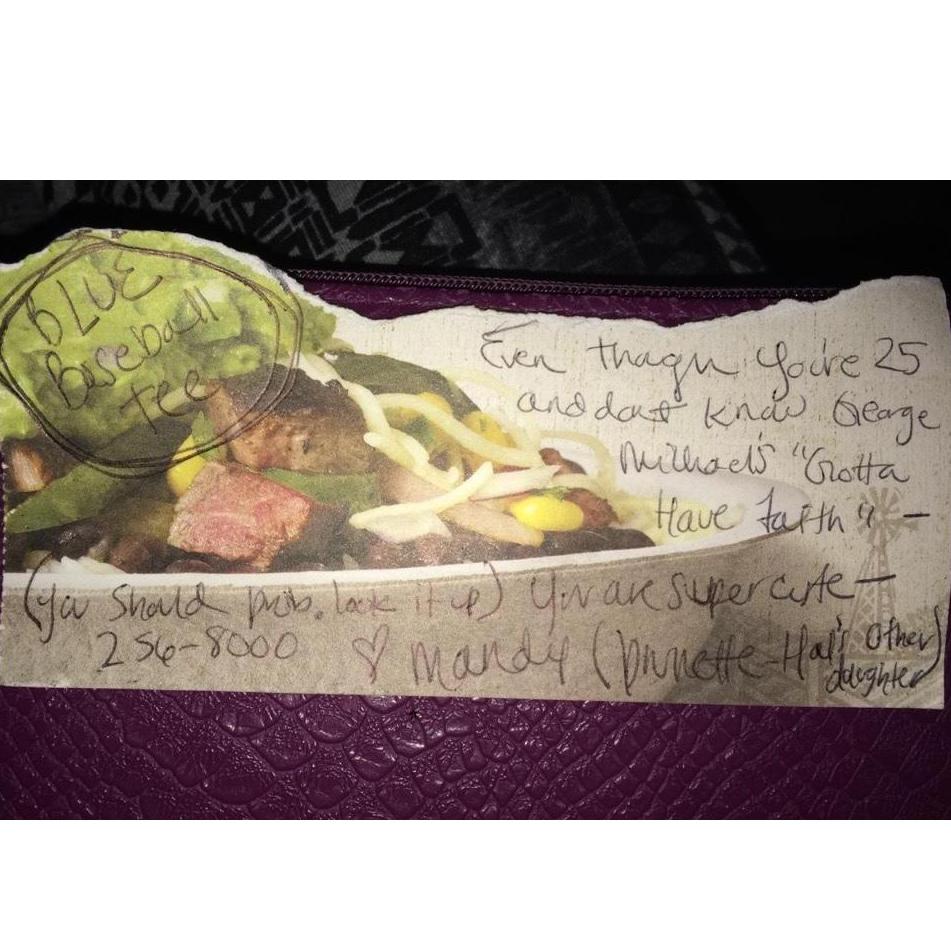 BLUE
Baseball
Tee
Even though you're 25
and don't know George
Michael's "Gotta
Have Faith" —
(you should prob. look it up) You are super cute —
256-8000 ♡ Mandy (brunette-Hal's other
daughter)